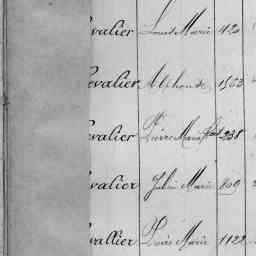 valier Louis Marie 420
evalier Alphonse 1563
valier Pierre Marie 238
valier Julien Marie 409
vallier Pierre Marie 1122